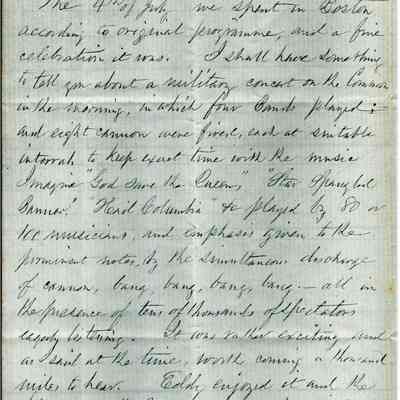 The 4th of July we spent in Boston
according to original programme, and a fine
celebration it was. I shall have something
to tell you about a military concert on the Common
in the morning, in which four Bands played;
and eight cannon were fired, each at suitable
intervals to keep exact time with the music
Imagine "God save the Queen," "Star Spangled
Banner." "Hail Columbia" &c played by 80 or
100 musicians, and emphases given to the
prominent notes, by the simultaneous discharge
of cannon, bang, bang, bang, bang,— all in
the presence of tens of thousands of spectators
eagerly listening. It was rather exciting and
as I said at the time, worth coming a thousand
miles to hear. Eddy enjoyed it and the